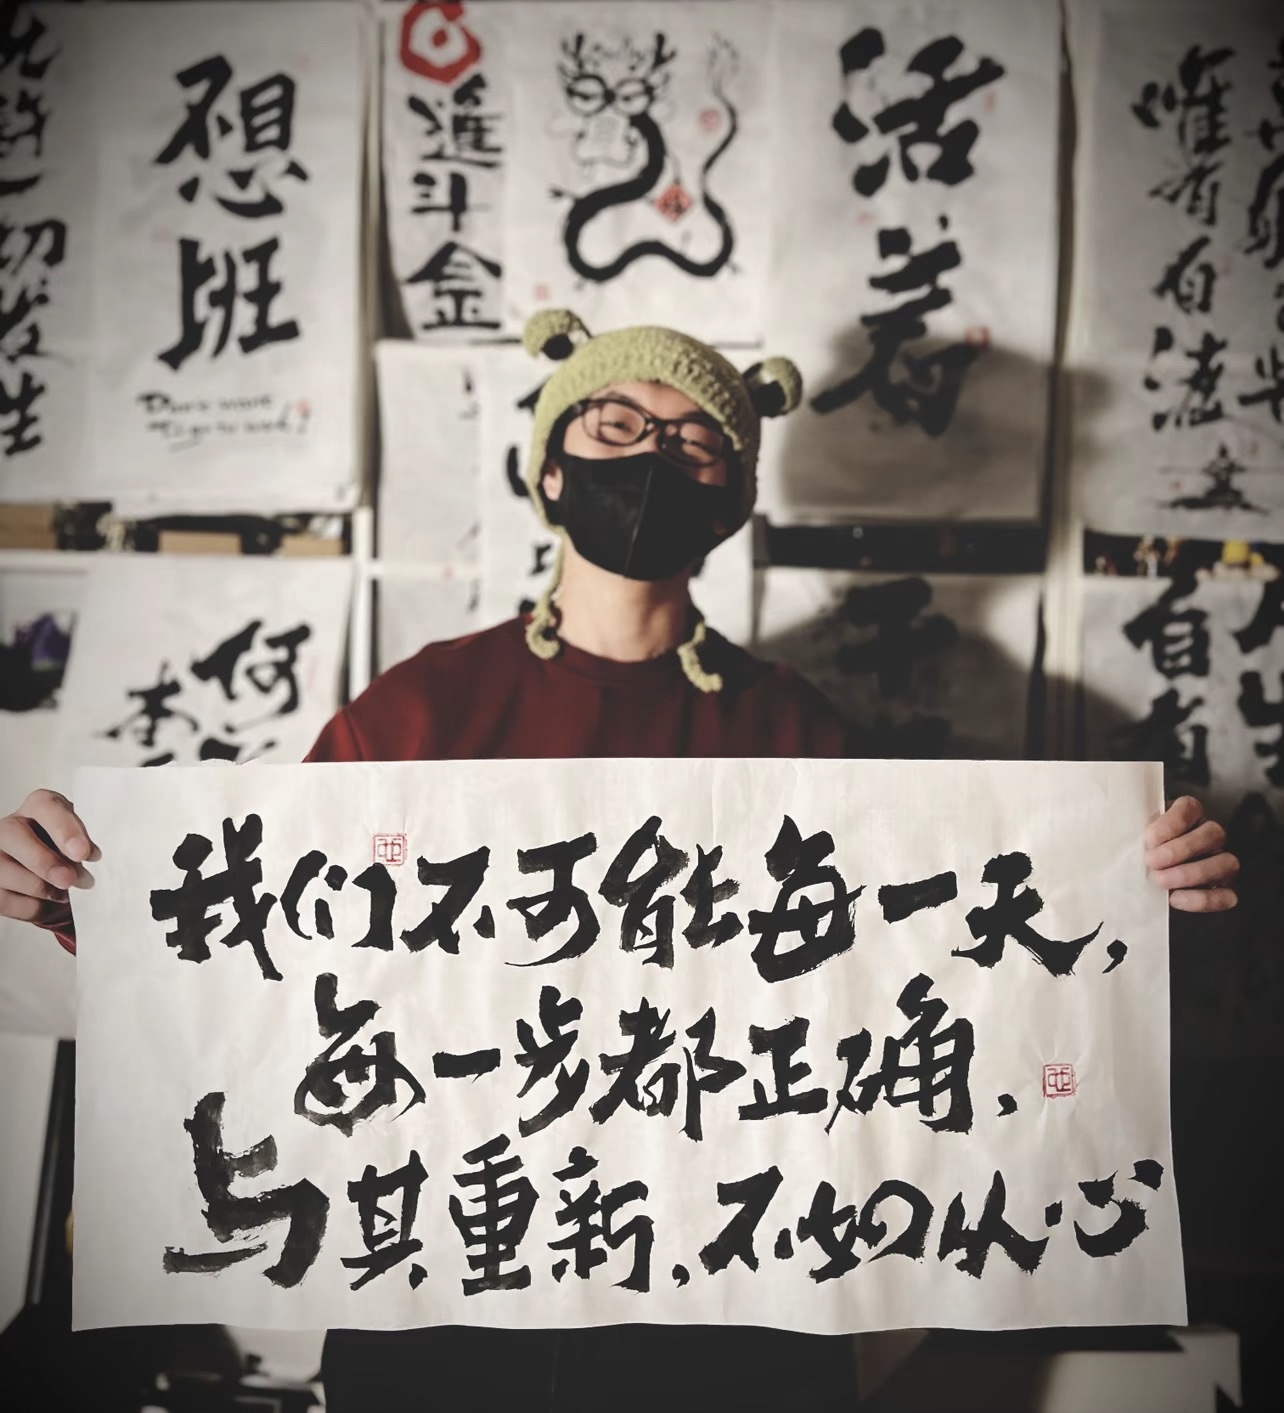 我们不可能每一天，
每一步都正确，
与其重新，不如从心
想班
Don't want
to go to work!
進斗金
活着
唯有自渡
一切发生
何
本
自有
人生